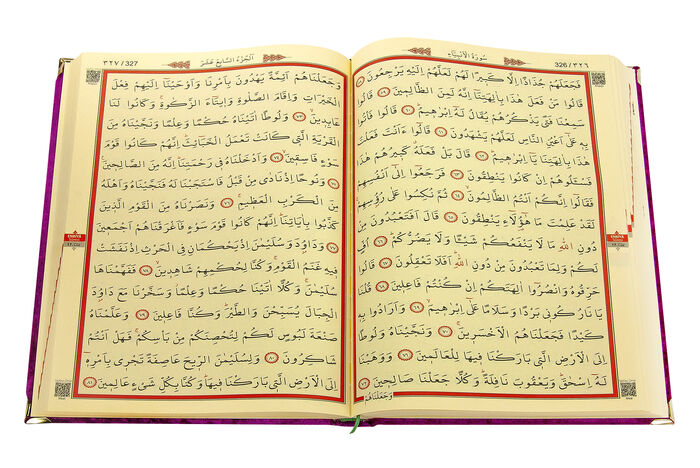 سُورَةُ الْاَنْبِيَاءِ 326/٣٢٦
فَجَعَلَهُمْ جُذَاذًا اِلَّا كَبِيرًا لَهُمْ لَعَلَّهُمْ اِلَيْهِ يَرْجِعُونَ ﴿٥٨﴾
قَالُوا مَنْ فَعَلَ هٰذَا بِاٰلِهَتِنَا اِنَّهُ لَمِنَ الظَّالِمِينَ ﴿٥٩﴾ قَالُوا
سَمِعْنَا فَتًى يَذْكُرُهُمْ يُقَالُ لَهُ اِبْرٰهِيمُ ﴿٦٠﴾ قَالُوا فَأْتُوا
بِهِ عَلٰى اَعْيُنِ النَّاسِ لَعَلَّهُمْ يَشْهَدُونَ ﴿٦١﴾ قَالُوا ءَاَنْتَ فَعَلْتَ
هٰذَا بِاٰلِهَتِنَا يَا اِبْرٰهِيمُ ﴿٦٢﴾ قَالَ بَلْ فَعَلَهُ كَبِيرُهُمْ هٰذَا
فَسْـَٔلُوهُمْ اِنْ كَانُوا يَنْطِقُونَ ﴿٦٣﴾ فَرَجَعُوا اِلٰى اَنْفُسِهِمْ
فَقَالُوا اِنَّكُمْ اَنْتُمُ الظَّالِمُونَ ﴿٦٤﴾ ثُمَّ نُكِسُوا عَلٰى رُؤُسِهِمْ
لَقَدْ عَلِمْتَ مَا هٰؤُلَاءِ يَنْطِقُونَ ﴿٦٥﴾ قَالَ اَفَتَعْبُدُونَ مِنْ
دُونِ اللّٰهِ مَا لَا يَنْفَعُكُمْ شَيْـًٔا وَلَا يَضُرُّكُمْ ﴿٦٦﴾ اُفٍّ
لَكُمْ وَلِمَا تَعْبُدُونَ مِنْ دُونِ اللّٰهِ اَفَلَا تَعْقِلُونَ ﴿٦٧﴾ قَالُوا
حَرِّقُوهُ وَانْصُرُوا اٰلِهَتَكُمْ اِنْ كُنْتُمْ فَاعِلِينَ ﴿٦٨﴾ قُلْنَا
يَا نَارُ كُونِى بَرْدًا وَسَلَامًا عَلٰى اِبْرٰهِيمَ ﴿٦٩﴾ وَاَرَادُوا بِهِ
كَيْدًا فَجَعَلْنَاهُمُ الْاَخْسَرِينَ ﴿٧٠﴾ وَنَجَّيْنَاهُ وَلُوطًا
اِلَى الْاَرْضِ الَّتِى بَارَكْنَا فِيهَا لِلْعَالَمِينَ ﴿٧١﴾ وَوَهَبْنَا
لَهُ اِسْحٰقَ وَيَعْقُوبَ نَافِلَةً وَكُلًّا جَعَلْنَا صَالِحِينَ ﴿٧٢﴾
وَجَعَلْنَاهُمْ
٣٢٧/327 اَلْجُزْءُ السَّابِعُ عَشَرَ
وَجَعَلْنَاهُمْ اَئِمَّةً يَهْدُونَ بِاَمْرِنَا وَاَوْحَيْنَا اِلَيْهِمْ فِعْلَ
الْخَيْرَاتِ وَاِقَامَ الصَّلٰوةِ وَاِيتَاءَ الزَّكٰوةِ وَكَانُوا لَنَا
عَابِدِينَ ﴿٧٣﴾ وَلُوطًا اٰتَيْنَاهُ حُكْمًا وَعِلْمًا وَنَجَّيْنَاهُ مِنَ
الْقَرْيَةِ الَّتِى كَانَتْ تَعْمَلُ الْخَبَائِثَ اِنَّهُمْ كَانُوا قَوْمَ
سَوْءٍ فَاسِقِينَ ﴿٧٤﴾ وَاَدْخَلْنَاهُ فِى رَحْمَتِنَا اِنَّهُ مِنَ الصَّالِحِينَ
﴿٧٥﴾ وَنُوحًا اِذْ نَادٰى مِنْ قَبْلُ فَاسْتَجَبْنَا لَهُ فَنَجَّيْنَاهُ وَاَهْلَهُ
مِنَ الْكَرْبِ الْعَظِيمِ ﴿٧٦﴾ وَنَصَرْنَاهُ مِنَ الْقَوْمِ الَّذِينَ
كَذَّبُوا بِاٰيَاتِنَا اِنَّهُمْ كَانُوا قَوْمَ سَوْءٍ فَاَغْرَقْنَاهُمْ اَجْمَعِينَ
﴿٧٧﴾ وَدَاوُدَ وَسُلَيْمٰنَ اِذْ يَحْكُمَانِ فِى الْحَرْثِ اِذْ نَفَشَتْ
فِيهِ غَنَمُ الْقَوْمِ وَكُنَّا لِحُكْمِهِمْ شَاهِدِينَ ﴿٧٨﴾ فَفَهَّمْنَاهَا
سُلَيْمٰنَ وَكُلًّا اٰتَيْنَا حُكْمًا وَعِلْمًا وَسَخَّرْنَا مَعَ دَاوُدَ
الْجِبَالَ يُسَبِّحْنَ وَالطَّيْرَ وَكُنَّا فَاعِلِينَ ﴿٧٩﴾ وَعَلَّمْنَاهُ
صَنْعَةَ لَبُوسٍ لَكُمْ لِتُحْصِنَكُمْ مِنْ بَأْسِكُمْ فَهَلْ اَنْتُمْ
شَاكِرُونَ ﴿٨٠﴾ وَلِسُلَيْمٰنَ الرِّيحَ عَاصِفَةً تَجْرِى بِاَمْرِهِ
اِلَى الْاَرْضِ الَّتِى بَارَكْنَا فِيهَا وَكُنَّا بِكُلِّ شَىْءٍ عَالِمِينَ ﴿٨١﴾